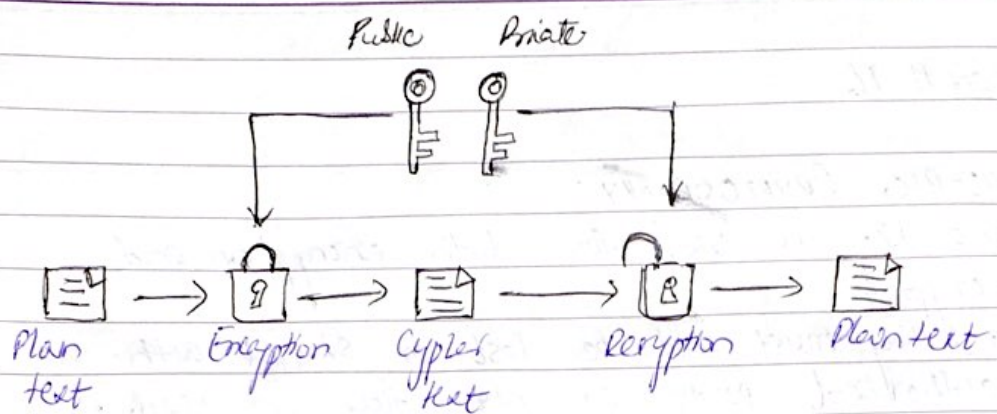 Public Private
Plain
text
Encryption
Cypher
text
Decryption
Plain text